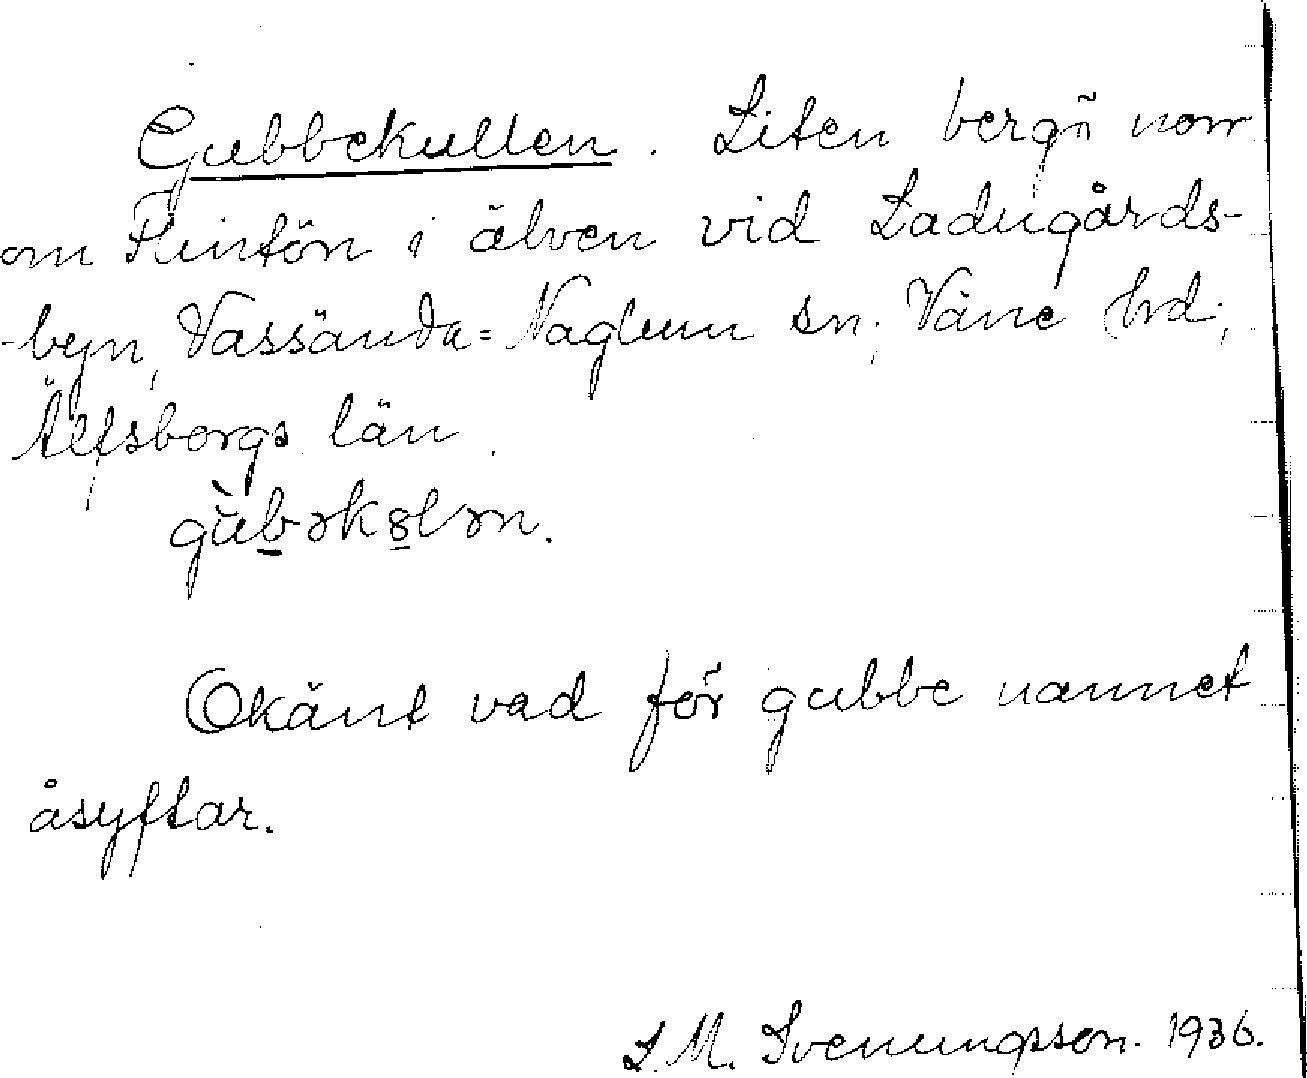 Gubbekullen. Liten bergö norr
om Flintön i älven vid Ladugårds-
-byn, Vassända-Naglum sn, Väne hd,
Älfsborgs län.
gùbəkȣlən.
Okänt vad för gubbe namnet
åsyftar.
S. M. Svenungsson. 1936.